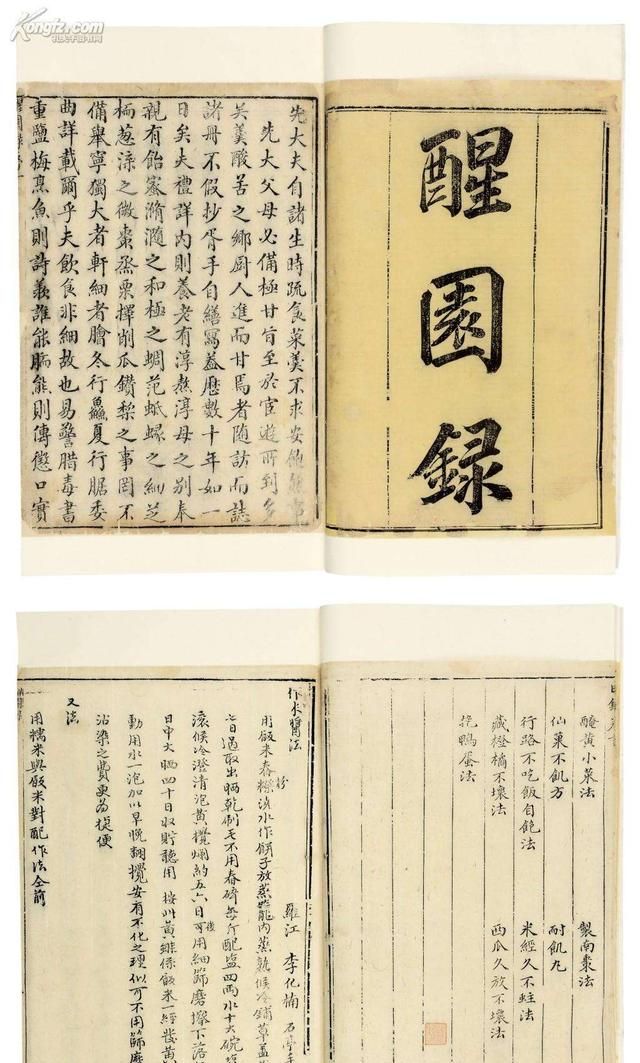 Kongfz.com
孔夫子旧书网
醒園録
先大夫自諸生時疏食菜羹不求安飽然事
先大父母必備極甘旨至於宦遊所到多
吳羹酸苦之鄉厨人進而甘焉者随訪而誌
諸冊不假抄胥手自繕寫蓋歷數十年如一
日矣夫禮詳内則養老有淳熬淳母之别奉
親有飴蜜滫瀡之和極之蜩范蚳蝝之細芝
栭葱之微棗烝栗擇削瓜鑽梨之事罔不
備舉寧獨大者軒細者膾冬行鱻夏行腒委
曲詳載爾乎夫飲食非細故也易警腊毒書
重鹽梅烹魚則詩羨誰能胹熊則傳懲口實
醃黄小菜法 製南棗法
仙菓不飢方 耐飢丸
行路不吃飯自飽法 米經久不蛀法
藏橙橘不壞法 西瓜久放不壞法
挠鴨蛋法
羅江 李化楠 石亭手
作米醬法
用飯米舂粉澆水作餅子放蒸籠内蒸熟候冷鋪草蓋
七日過取出晒乾刷毛不用舂碎每斤配塩四兩水十大碗
滚候冷澄清泡黄攪爛約五六日後可用細篩磨擦下落
日中大晒四十日收貯聽用 按此黄雖係飯米一經發黄
動用水一泡加以早晚翻攪安有不化之理似可不用篩磨
沾染之費更為捷便
又法
用糯米與飯米對配作法仝前